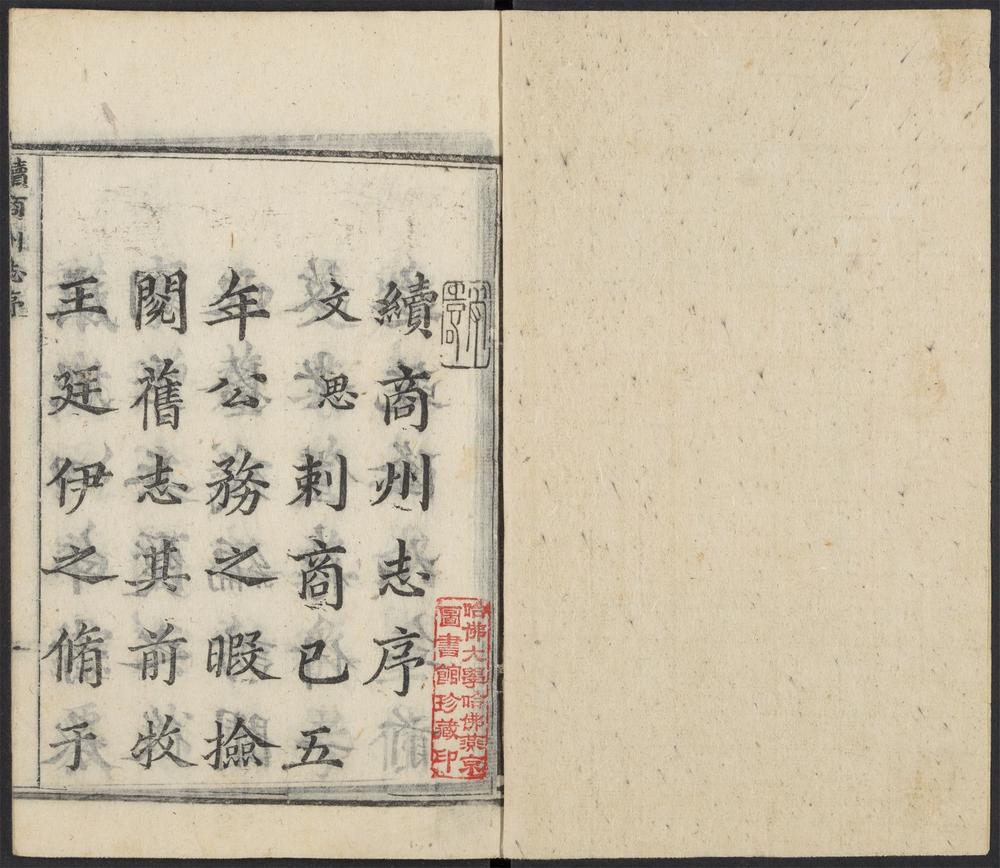 哈佛大學哈佛燕京
圖書館珍藏印
續商州志序
文思刺商已五
年公務之暇撿
閱舊志其前牧
王廷伊之脩于
續商州志序